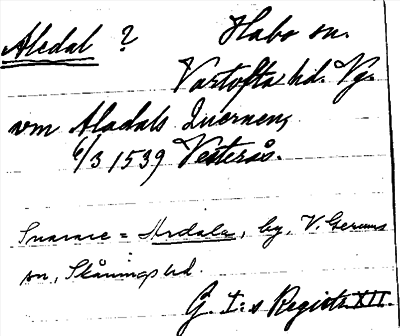 Aledal ? Habo sn.
Vartofta hd. Vg.
om Aladals Quernen,
6/3 1539 Vesterås.
Snarare = Årdala, by, V. Gerums
sn, Skånings hd.
G. I:s Registr. XII.